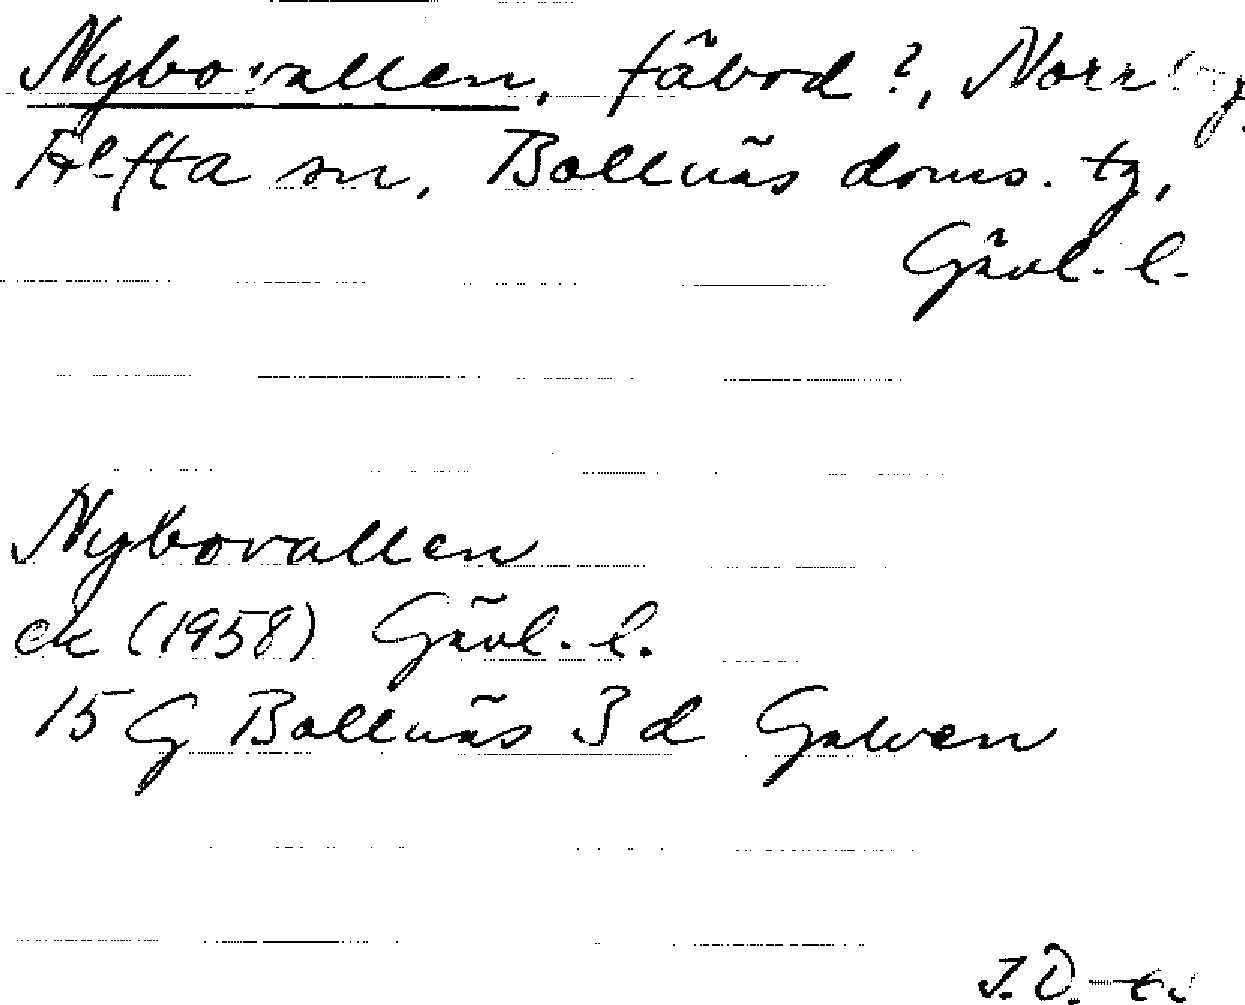 Nybovallen, fäbod ?, Norrbyn
Alfta sn, Bollnäs doms. tg,
Gävl. l.
Nybovallen
ek (1958) Gävl. l.
15 G Bollnäs 3 d Galven